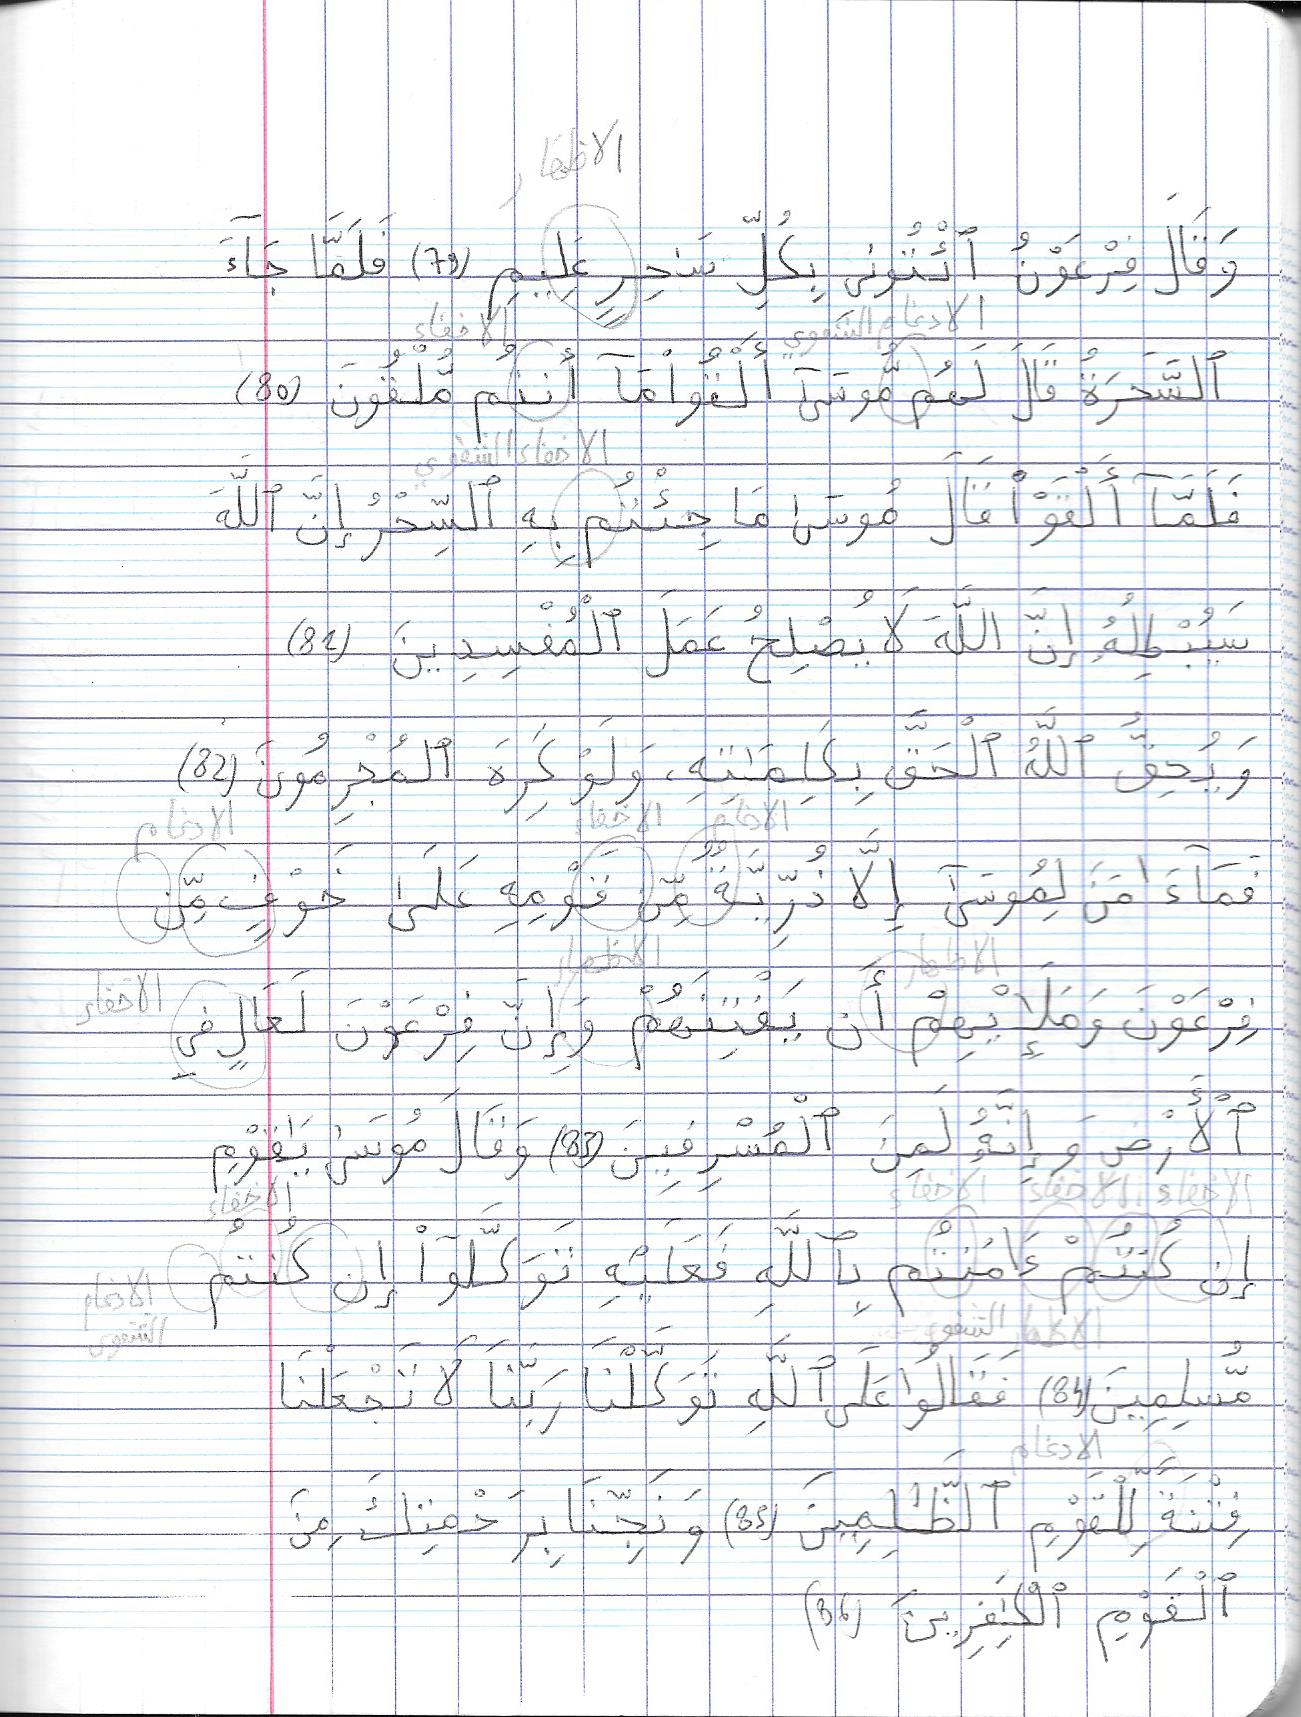 الاظهار
وَقَالَ فِرْعَوْنُ ٱئْتُونِى بِكُلِّ سَٰحِرٍ عَلِيمٍ (79) فَلَمَّا جَآءَ
الادغام الشفوي الاخفاء
ٱلسَّحَرَةُ قَالَ لَهُم مُّوسَىٰٓ أَلْقُوا۟ مَآ أَنتُم مُّلْقُونَ (80)
الاخفاء الشفوي
فَلَمَّآ أَلْقَوْا۟ قَالَ مُوسَىٰ مَا جِئْتُم بِهِ ٱلسِّحْرُ إِنَّ ٱللَّهَ
سَيُبْطِلُهُۥٓ إِنَّ اللَّهَ لَا يُصْلِحُ عَمَلَ ٱلْمُفْسِدِينَ (81)
وَيُحِقُّ ٱللَّهُ ٱلْحَقَّ بِكَلِمَٰتِهِۦ وَلَوْ كَرِهَ ٱلْمُجْرِمُونَ (82)
الادغام الاخفاء الادغام
فَمَآ ءَامَنَ لِمُوسَىٰٓ إِلَّا ذُرِّيَّةٌ مِّن قَوْمِهِ عَلَىٰ خَوْفٍ مِّن
الاظهار الاظهار
فِرْعَوْنَ وَمَلَإِي۟هِمْ أَن يَفْتِنَهُمْ وَإِنَّ فِرْعَوْنَ لَعَالٍ فِي الاخفاء
ٱلْأَرْضِ وَإِنَّهُۥ لَمِنَ ٱلْمُسْرِفِينَ (83) وَقَالَ مُوسَىٰ يَٰقَوْمِ
الاخفاء الاخفاء الاخفاء الاخفاء
إِن كُنتُمْ ءَامَنتُم بِٱللَّهِ فَعَلَيْهِ تَوَكَّلُوٓا۟ إِن كُنتُم الادغام الشفوي
الاظهار الشفوي
مُّسْلِمِينَ (84) فَقَالُوا۟ عَلَى ٱللَّهِ تَوَكَّلْنَا رَبَّنَا لَا تَجْعَلْنَا
الادغام
فِتْنَةً لِّلْقَوْمِ ٱلظَّٰلِمِينَ (85) وَنَجِّنَا بِرَحْمَتِكَ مِنَ
ٱلْقَوْمِ ٱلْكَٰفِرِينَ (86)